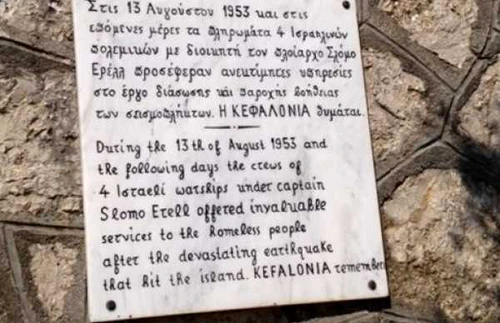 Στις 13 Αυγούστου 1953 και στις
επόμενες μέρες τα πληρώματα 4 Ισραηλινών
πολεμικών με διοικητή τον πλοίαρχο Σλόμο
Ερέλλ προσέφεραν ανεκτίμητες υπηρεσίες
στο έργο διάσωσης και παροχής βοήθειας
των σεισμοπλήκτων. Η ΚΕΦΑΛΟΝΙΑ θυμάται.
During the 13th of August 1953 and
the following days the crews of
4 Israeli warships under captain
Slomo Erell offered invaluable
services to the homeless people
after the devastating earthquake
that hit the island. KEFALONIA remember